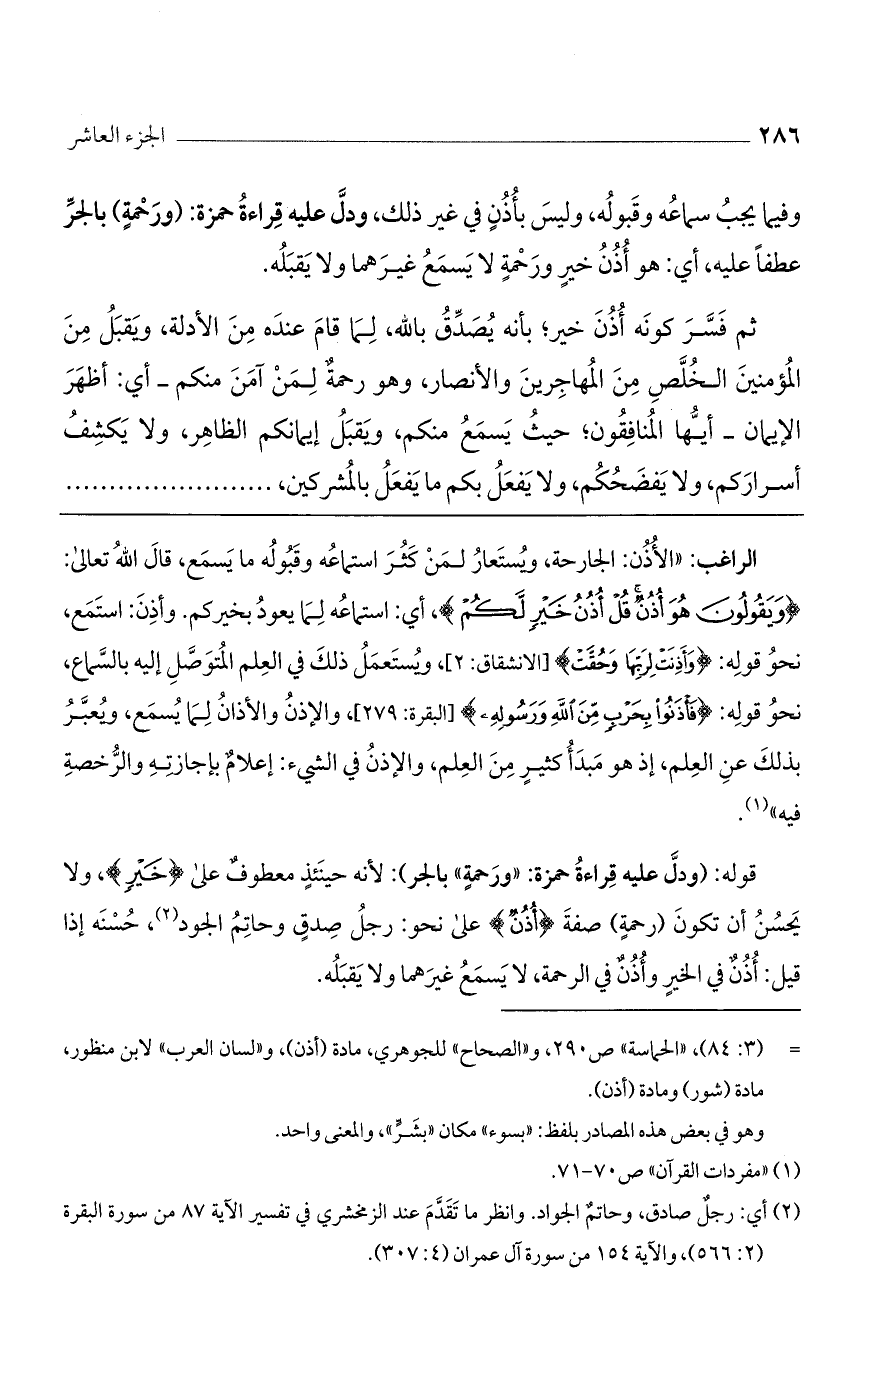 ٢٨٦ الجزء العاشر
وفيما يجبُ سماعُه وقَبولُه، وليسَ بأُذُنٍ في غير ذلك، ودلَّ عليه قِراءةُ حمزة: (ورَحْمةٍ) بالجرِّ
عطفاً عليه، أي: هو أُذُنُ خيرٍ ورَحْمةٍ لا يَسمَعُ غيرَهما ولا يَقبَلُه.
ثم فَسَّرَ كونَه أُذُنَ خير؛ بأنه يُصَدِّقُ بالله، لِـمَا قامَ عندَه مِنَ الأدلة، ويَقبَلُ مِنَ
المُؤمنينَ الـخُلَّصِ مِنَ المُهاجِرينَ والأنصار، وهو رحمةٌ لِـمَنْ آمَنَ منكم - أي: أظهَرَ
الإيمان - أيُّها المُنافِقُون؛ حيثُ يَسمَعُ منكم، ويَقبَلُ إيمانكم الظاهِر، ولا يَكشِفُ
أسرارَكم، ولا يَفضَحُكُم، ولا يَفعَلُ بكم ما يَفعَلُ بالمُشركين، ........................
الراغب: «الأُذُن: الجارحة، ويُستَعارُ لـمَنْ كَثُرَ استماعُه وقَبُولُه ما يَسمَع، قالَ اللهُ تعالىٰ:
﴿وَيَقُولُونَ هُوَ أُذُنٌۚ قُلْ أُذُنُ خَيْرٍ لَّكُمْ﴾، أي: استماعُه لِـمَا يعودُ بخيركم. وأذِنَ: استَمَع،
نحوُ قولِه: ﴿وَأَذِنَتْ لِرَبِّهَا وَحُقَّتْ﴾ [الانشقاق: ٢]، ويُستَعمَلُ ذلكَ في العِلم المُتوَصَّلِ إليه بالسَّماع،
نحوُ قولِه: ﴿فَأْذَنُواْ بِحَرْبٍ مِّنَ ٱللَّهِ وَرَسُولِهِۦ﴾ [البقرة: ٢٧٩]، والإذنُ والأذانُ لِـمَا يُسمَع، ويُعبَّرُ
بذلكَ عنِ العِلم، إذ هو مَبدَأُ كثيرٍ مِنَ العِلم، والإذنُ في الشيء: إعلامٌ بإجازتِهِ والرُّخصةِ
فيه»(١).
قوله: (ودلَّ عليه قِراءةُ حمزة: «ورَحمةٍ» بالجر): لأنه حينَئذٍ معطوفٌ علىٰ ﴿خَيْرٍ﴾، ولا
يَحسُنُ أن تكونَ (رحمةٍ) صفةَ ﴿أُذُنٌ﴾ علىٰ نحو: رجلُ صِدقٍ وحاتِمُ الجود(٢)، حُسْنَه إذا
قيل: أُذُنٌ في الخيرِ وأُذُنٌ في الرحمة، لا يَسمَعُ غيرَهما ولا يَقبَلُه.
= (٣: ٨٤)، «الحماسة» ص٢٩٠، و«الصحاح» للجوهري، مادة (أذن)، و«لسان العرب» لابن منظور،
مادة (شور) ومادة (أذن).
وهو في بعض هذه المصادر بلفظ: «بسوء» مكان «بشَرٍّ»، والمعنى واحد.
(١) «مفردات القرآن» ص٧٠-٧١.
(٢) أي: رجلٌ صادق، وحاتمٌ الجواد. وانظر ما تَقَدَّمَ عند الزمخشري في تفسير الآية ٨٧ من سورة البقرة
(٢: ٥٦٦)، والآية ١٥٤ من سورة آل عمران (٤: ٣٠٧).